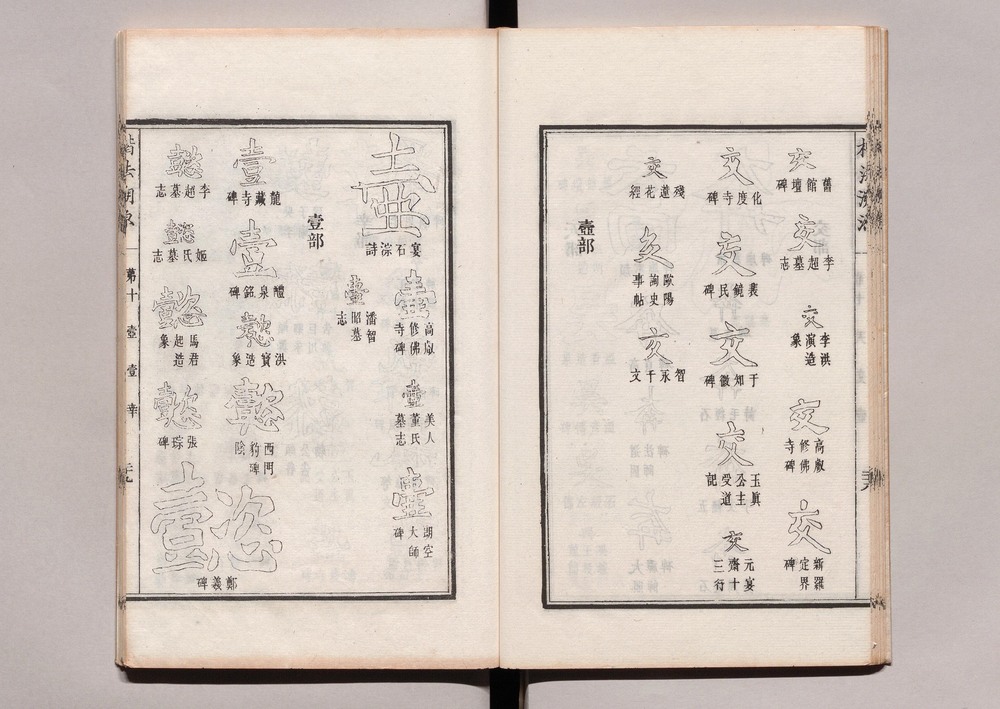 交 舊館壇碑
交 李超墓志
交 李洪演造象
交 高叡修佛寺碑
交 新羅定界碑
交 化度寺碑
交 裴鏡民碑
交 于知微碑
交 玉真公主受道記
交 元宴齋十三行
交 殘蓮花經
交 歐陽詢史事帖
交 智永千文
壺部
壺 宴石淙詩
壺 高叡修佛寺碑
壺 美人董氏墓志
壺 朗空大師碑
壺 潘智昭墓志
壹部
壹 龍藏寺碑
壹 醴泉銘碑
懿 洪寶造象
懿 西門豹碑陰
懿 李超墓志
懿 姬氏墓志
懿 馬君起造象
懿 張琮碑
懿 鄭羲碑
楷法溯源 第十 壺 壹 幸